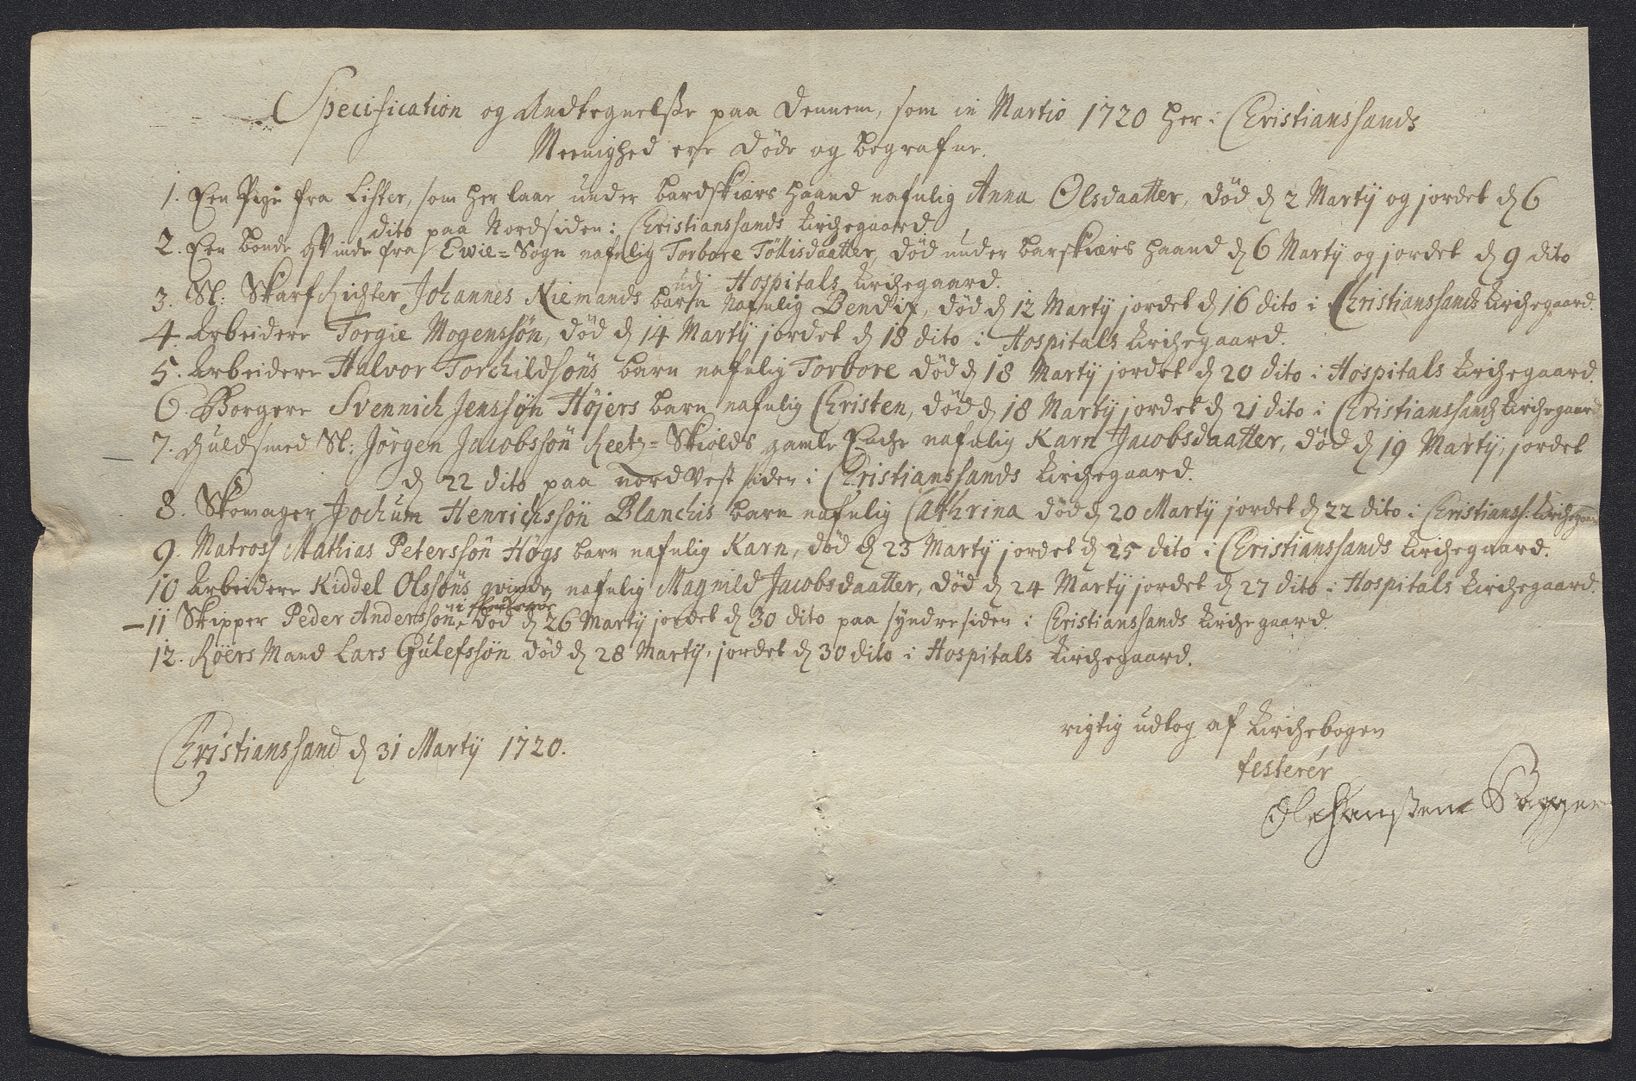 Specification og Andtegnelsse paa dennem, som in Martio 1720 her i Christianssands
Meenighed ere døde og begrafne.
1. Een Pige fra Lister, som her laae under bardskiærs haand nafnlig Anna Olsdaatter, død d. 2 Martij og jordet d. 6
dito paa Nordsiden i Christianssands Kirchegaard.
2. Een bonde Qvinde fra Evie-Sogn nafnlig Torbore Tøllisdaatter, død under barskiærs haand d. 6 Martij og jordet d. 9 dito
udj Hospitals Kirchegaard.
3. Sl: Skarfrichter Johannes Niemands barn nafnlig Bendix, død d. 12 Martij jordet d. 16 dito i Christianssands Kirchegaard.
4. Arbeidere Torgie Mogenssøn, død d. 14 Martij jordet d. 18 dito i Hospitals Kirchegaard.
5. Arbeidere Halvor Torchildsøns barn nafnlig Torbore død d. 18 Martij jordet d. 20 dito i Hospitals Kirchegaard.
6 Borgere Svennich Jenssøn Højers barn nafnlig Christen, død d. 18 Martij jordet d. 21 dito i Christianssands Kirchegaard
7. Guldsmed Sl: Jørgen Jacobssøn Reetz-Skiolds gamle Enche nafnlig Karn Jacobsdaatter, død d. 19 Martij, jordet
d. 22 dito paa nordvest siden i Christianssands Kirchegaard.
8. Skomager Jochum Henrichssøn Blanchis barn nafnlig Cathrina død d. 20 Martij jordet d. 22 dito i Christianss. Kirchegaard
9. Matross Mathias Peterssøn Høgs barn nafnlig Karn, død d. 23 Martij jordet d. 25 dito i Christianssands Kirchegaard.
10 Arbeidere Kiddel Olssøns qvinde nafnlig Magnild Jacobsdaatter, død d. 24 Martij jordet d. 27 dito i Hospitals Kirchegaard.
11 Skipper Peder Anderssøn, død d. 26 Martij jordet d. 30 dito paa syndre siden i Christianssands Kirchegaard
12. Røers Mand Lars Gulefssøn død d. 28 Martij, jordet d. 30 dito i Hospitals Kirchegaard.
Christianssand d. 31 Martij 1720.
rigtig udtog af Kirchebogen
testerer
Ole Hanssen Bagger